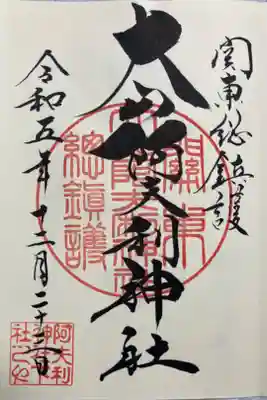 関東総鎮護
大山阿夫利神社
令和五年十二月二十
關東
總鎮護
阿夫利
神社下
社之印